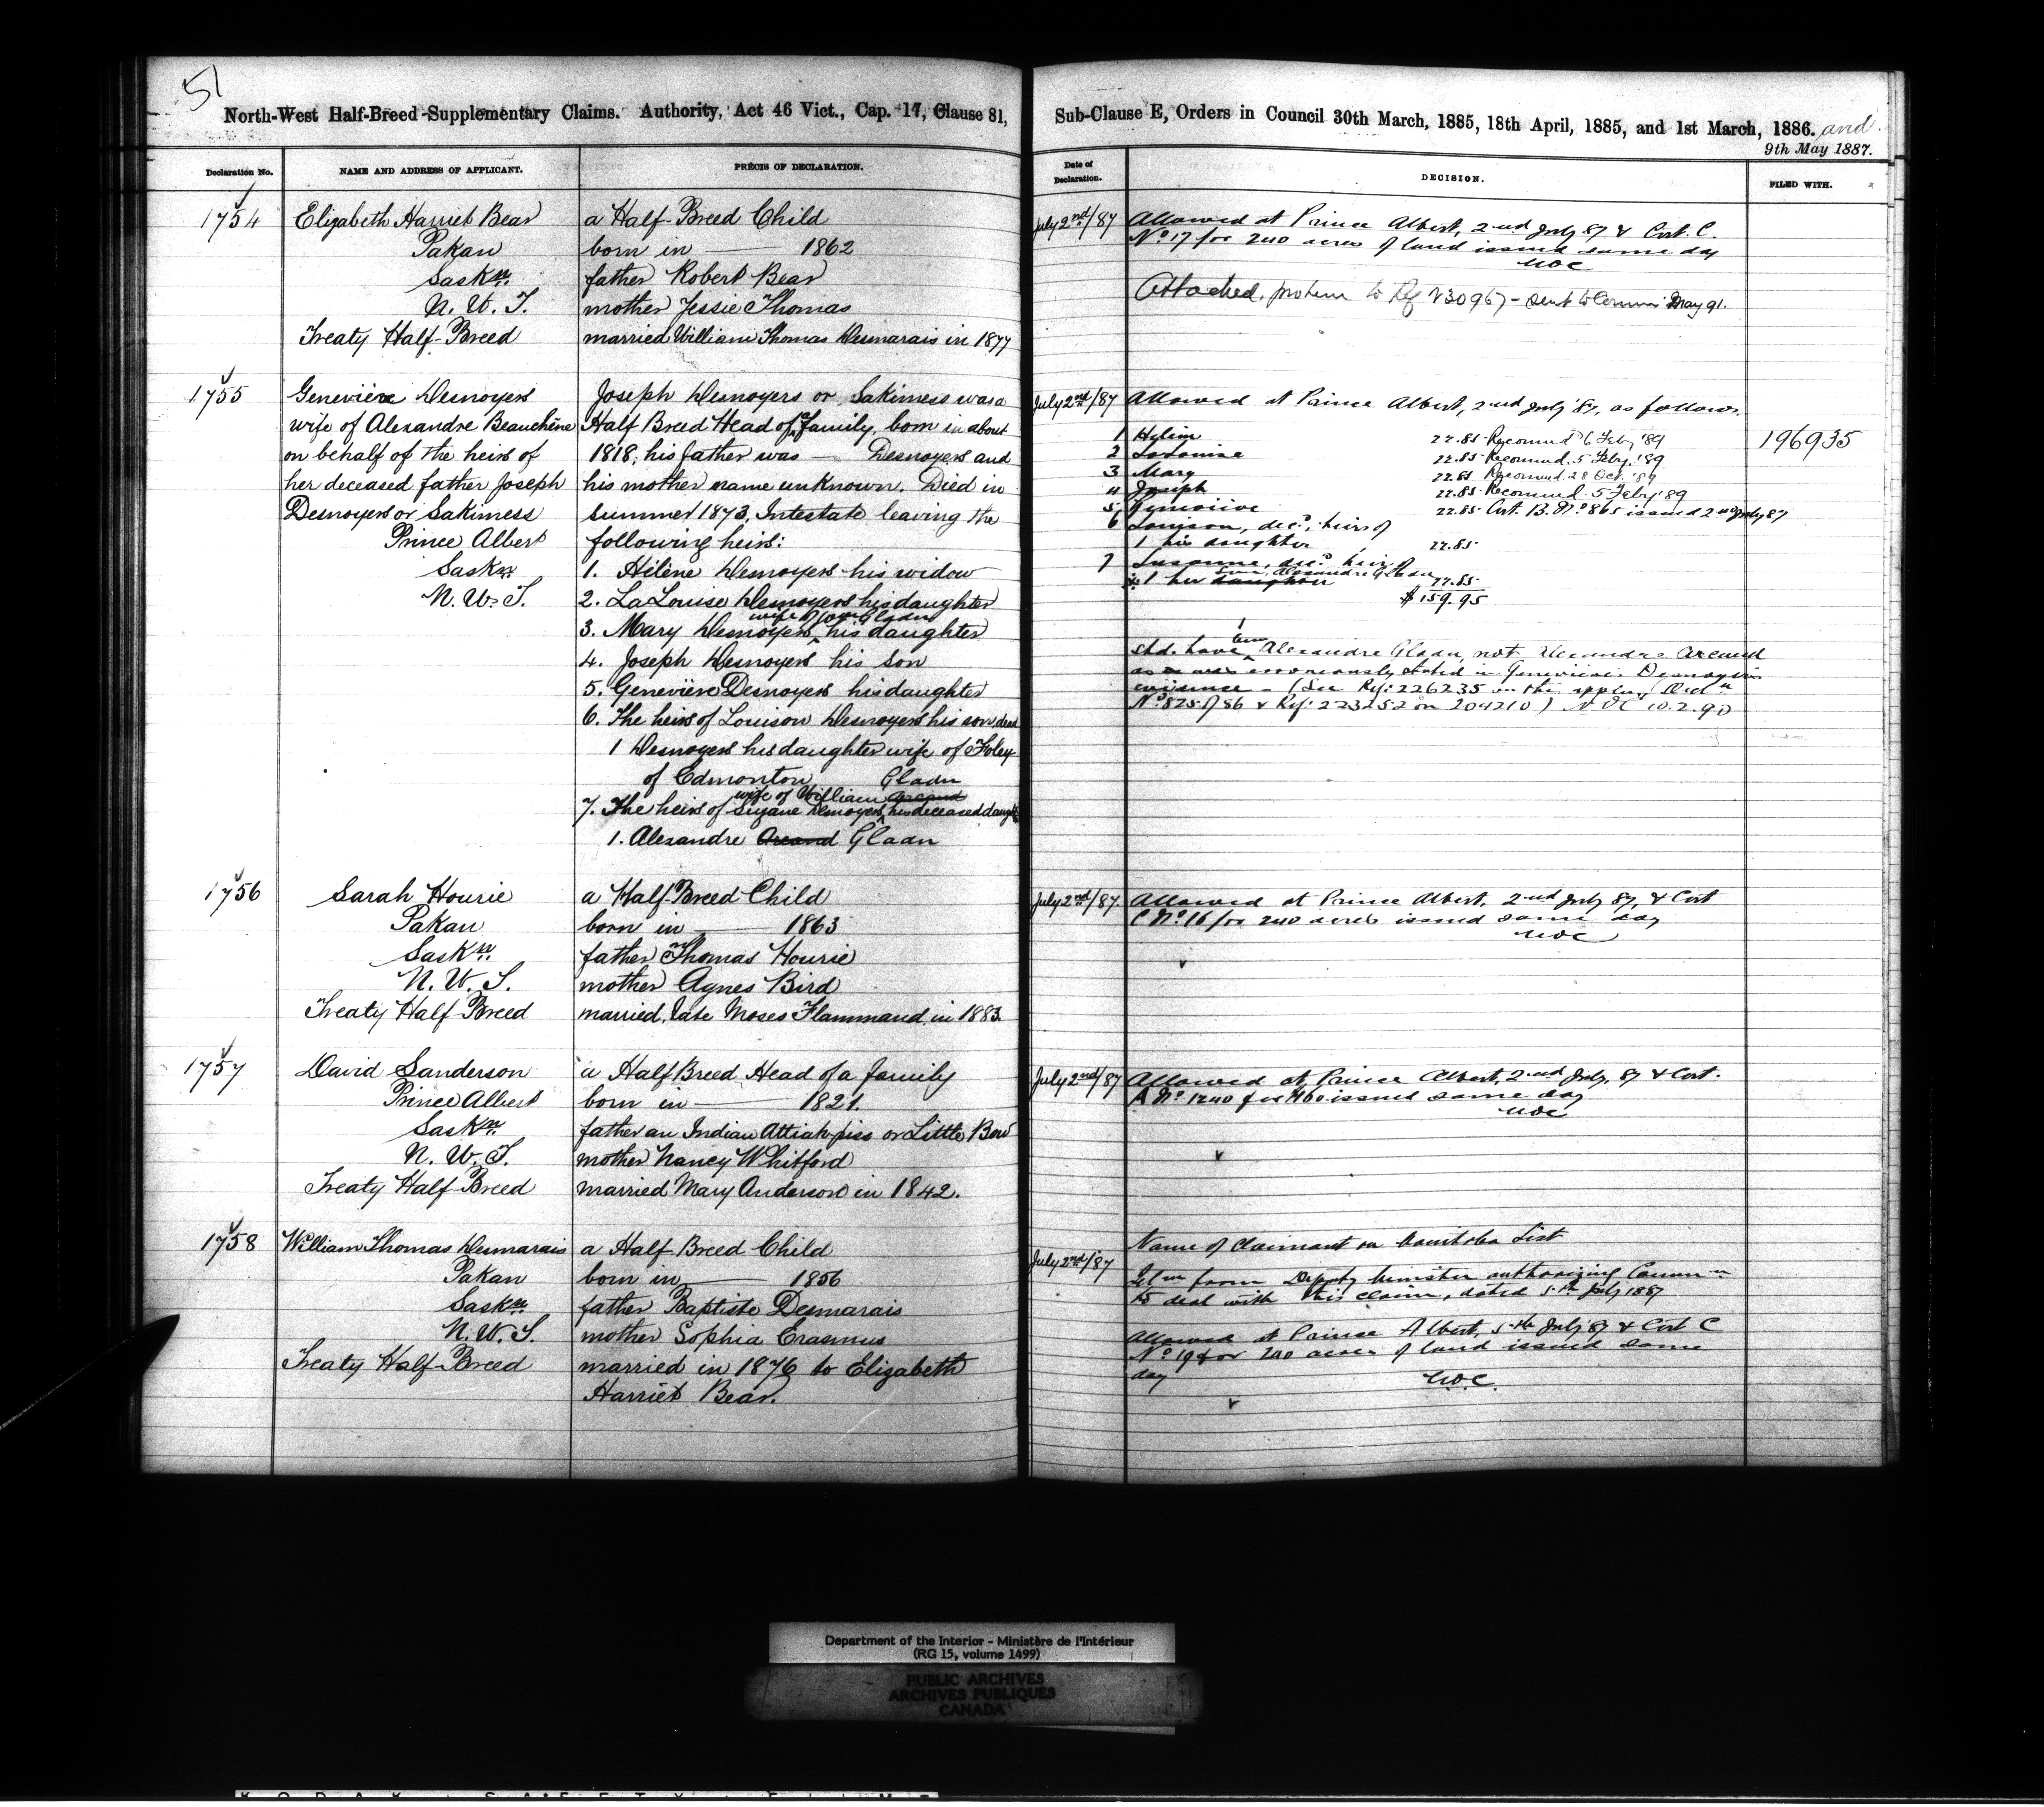 51
North-West Half-Breed Supplementary Claims. Authority, Act 46 Vict., Cap. 17, Clause 81,
Declaration No.
NAME AND ADDRESS OF APPLICANT.
PRÉCIS OF DECLARATION.
1754
Elizabeth Harriet Bear
a Half-Breed Child
Pakan
born in — 1862
Saskn.
father Robert Bear
N. W. T.
mother Jessie Thomas
Treaty Half-Breed
married William Thomas Desmarais in 1877
1755
Genevière Desnoyers
Joseph Desnoyers or Sakimess was a
wife of Alexandre Beauchêne
Half Breed Head of a family, born in about
on behalf of the heirs of
1818; his father was — Desnoyers and
her deceased father Joseph
his mother name unknown. Died in
Desnoyers or Sakimess
summer 1873, Intestate leaving the
Prince Albert
following heirs:
Saskn.
1. Hélène Desnoyers his widow
N. W. T.
2. LaLouise Desnoyers his daughter
wife of Gladu
3. Mary Desnoyers, his daughter
4. Joseph Desnoyers his son
5. Genevière Desnoyers his daughter
6. The heirs of Louison Desnoyers his son dead
1 Desnoyers his daughter wife of Foley
of Edmonton
Gladu
wife of William Arcand
7. The heirs of Suzane Desnoyers, his deceased daught
1. Alexandre Arcand Gladu
1756
Sarah Hourie
a Half-Breed Child
Pakan
born in — 1863
Saskn.
father Thomas Hourie
N. W. T.
mother Agnes Bird
Treaty Half Breed
married, late Moses Flammand, in 1883.
1757
David Sanderson
a Half Breed Head of a family
Prince Albert
born in — 1821.
Saskn.
father an Indian Attiah-piss or Little Bow
N. W. T.
mother Nancy Whitford
Treaty Half-Breed
married Mary Anderson in 1842.
1758
William Thomas Desmarais
a Half Breed Child
Pakan
born in — 1856
Saskn.
father Baptiste Desmarais
N. W. T.
mother Sophia Erasmus
Treaty Half-Breed
married in 1876 to Elizabeth
Harriet Bear.
Sub-Clause E, Orders in Council 30th March, 1885, 18th April, 1885, and 1st March, 1886. and
9th May 1887.
Date of Declaration.
DECISION.
FILED WITH.
July 2nd/87
Allowed at Prince Albert, 2nd July 87 & Cert. C.
No 17 for 240 acres of land issued same day
NOC
Attached protem to Ref 230967 - sent to May 91.
July 2nd/87
Allowed at Prince Albert, 2nd July '87, as follows.
1 Hélèn 22.85 Recommd 6 Feby '89
196935
2 LaLouise 22.85 Recommd. 5 Feby. '89
3 Mary 22.85 Recommd. 28 Oct. '89
4 Joseph 22.85 Recommd. 5 Feby '89
5 22.85 Cert. B. No 865 issued 2nd July 87
6 Louison, decd, heirs of
1 his daughter 22.85
7 Susanne, decd heirs
son, Alexandre Gladu
1 her daughter 22.85
$159.95
shd. have been Alexandre Gladu not Alexandre Arcand
as was erroneously stated in Genevieve Desnoyers
evidence - (See Ref: 226235 on the
No 825 of 86 & Ref: 223252 on 204210) NOC 10.2.90
July 2nd/87
Allowed at Prince Albert, 2nd July 87, & Cert
C No 16 for 240 acres issued same day
NOC
July 2nd/87
Allowed at Prince Albert, 2nd July. 87 & Cert.
A No 1240 for $160 issued same day
NOC
July 2nd/87
Name of Claimant on Manitoba List
from Deputy Minister authorizing Commn
to deal with this claim, dated 5th July 1887
Allowed at Prince Albert, 5th July 87 & Cert C
No 19 for 240 acres of land issued same
day N.O.C.
Department of the Interior - Ministère de l'Intérieur
(RG 15, volume 1499)
PUBLIC ARCHIVES
ARCHIVES PUBLIQUES
CANADA
KODAK SAFETY FILM